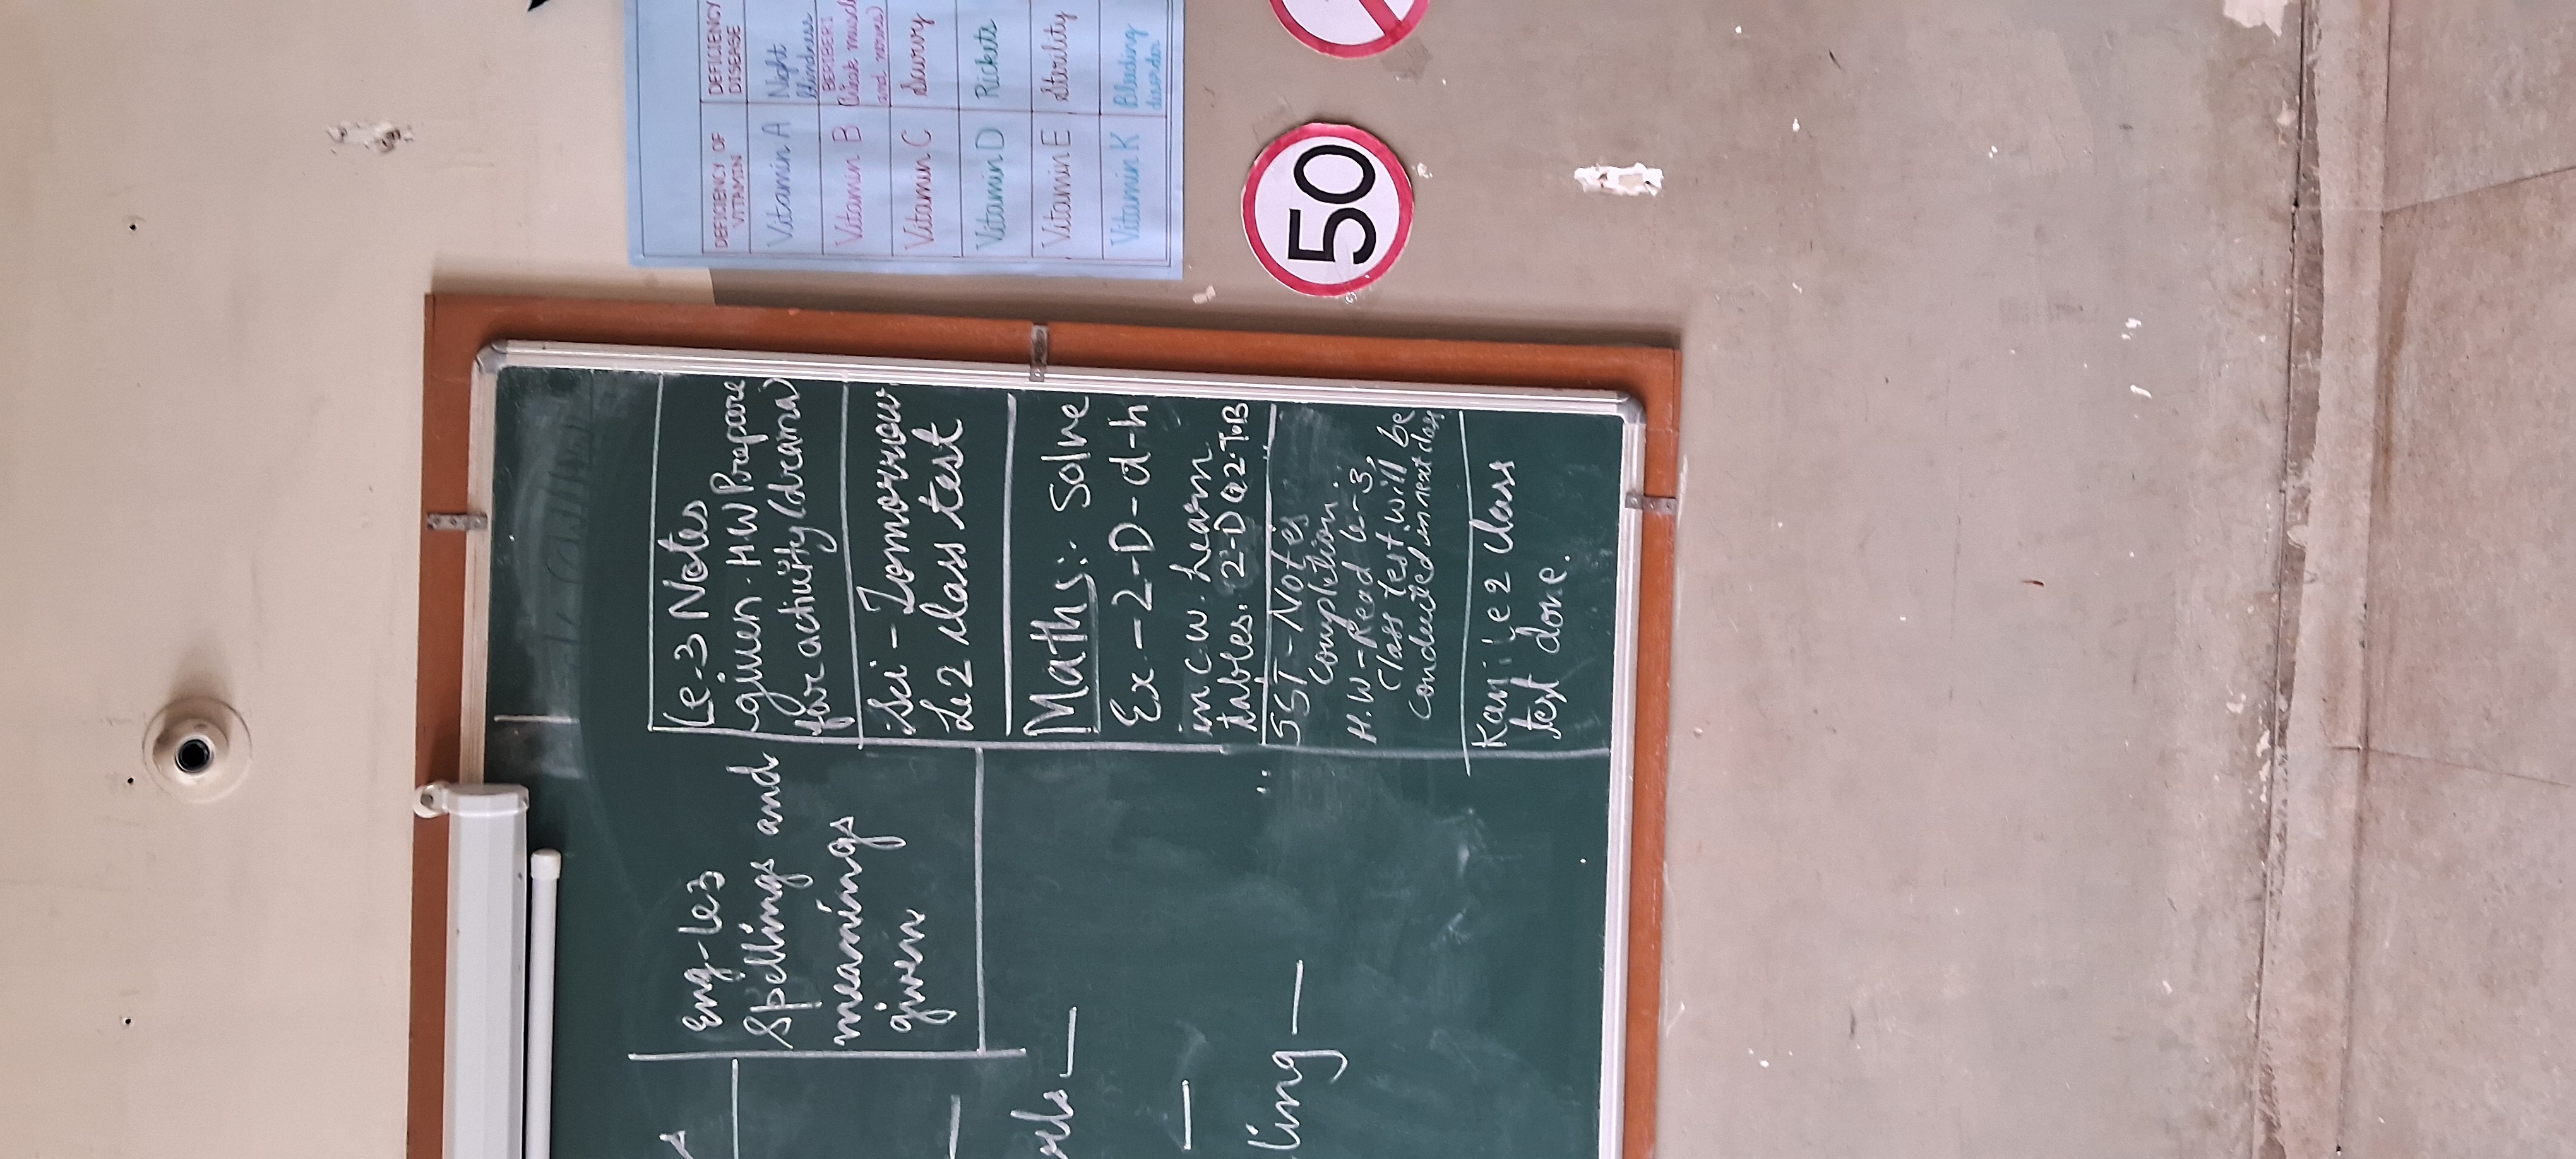 eng-le3
Spellings and
meanings
given
Le-3 Notes
given. HW Prepare
for activity (drama)
Sci - Tomorrow
Le 2 class test
Maths: Solve
Ex - 2 - D - d - h
in C.W. Learn
tables. 2-D Q2 T.B
SST - Notes
Completion.
H.W - Read le-3,
Class test will be
conducted in next class
2 class
test done.
ling —
DEFICIENCY OF VITAMIN DEFICIENCY DISEASE
Vitamin A Night blindness
Vitamin B BERIBERI (Weak muscles and nerves)
Vitamin C Scurvy
Vitamin D Rickets
Vitamin E Sterility
Vitamin K Bleeding disorder
50